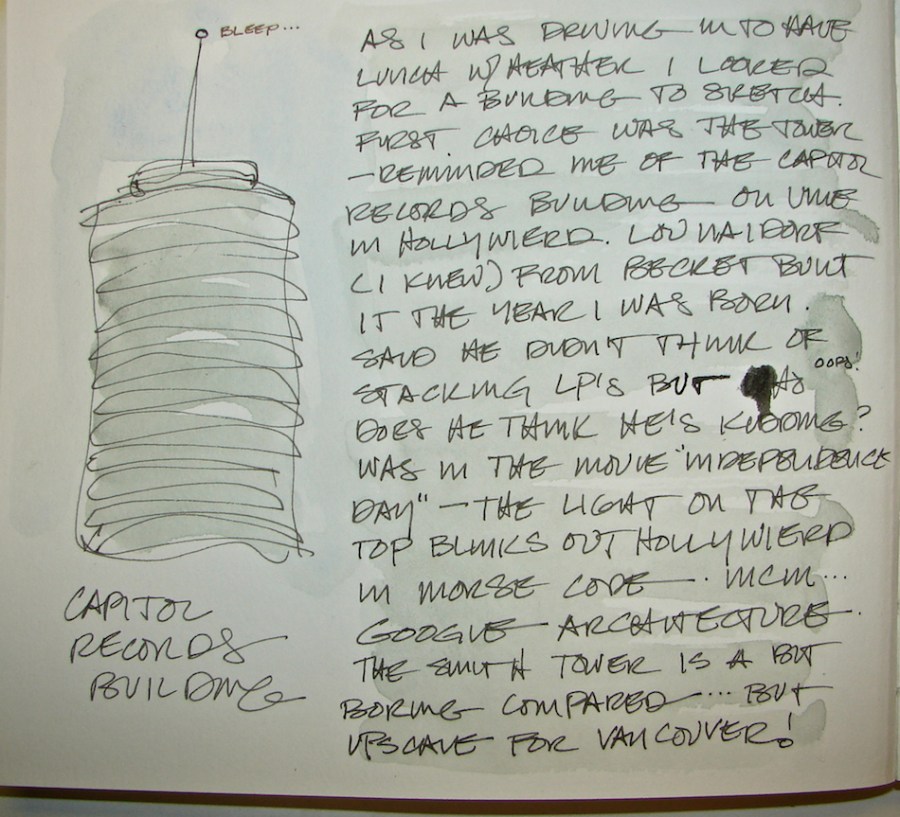 BLEEP...
AS I WAS DRIVING IN TO HAVE
LUNCH W/ HEATHER I LOOKED
FOR A BUILDING TO SKETCH.
FIRST CHOICE WAS THE TOWER
—REMINDED ME OF THE CAPITOL
RECORDS BUILDING ON VINE
IN HOLLYWIERD. LOU NAIDORF
(I KNEW) FROM BECKET BUILT
IT THE YEAR I WAS BORN.
SAID HE DIDN'T THINK OF
OOPS!
STACKING LP'S BUT AS
DOES HE THINK HE'S KIDDING?
WAS IN THE MOVIE "INDEPENDENCE
DAY" — THE LIGHT ON THE
TOP BLINKS OUT HOLLYWIERD
IN MORSE CODE. MCM...
GOOGIE ARCHITECTURE.
THE SMITH TOWER IS A BIT
BORING COMPARED... BUT
UPSCALE FOR VANCOUVER!
CAPITOL
RECORDS
BUILDING